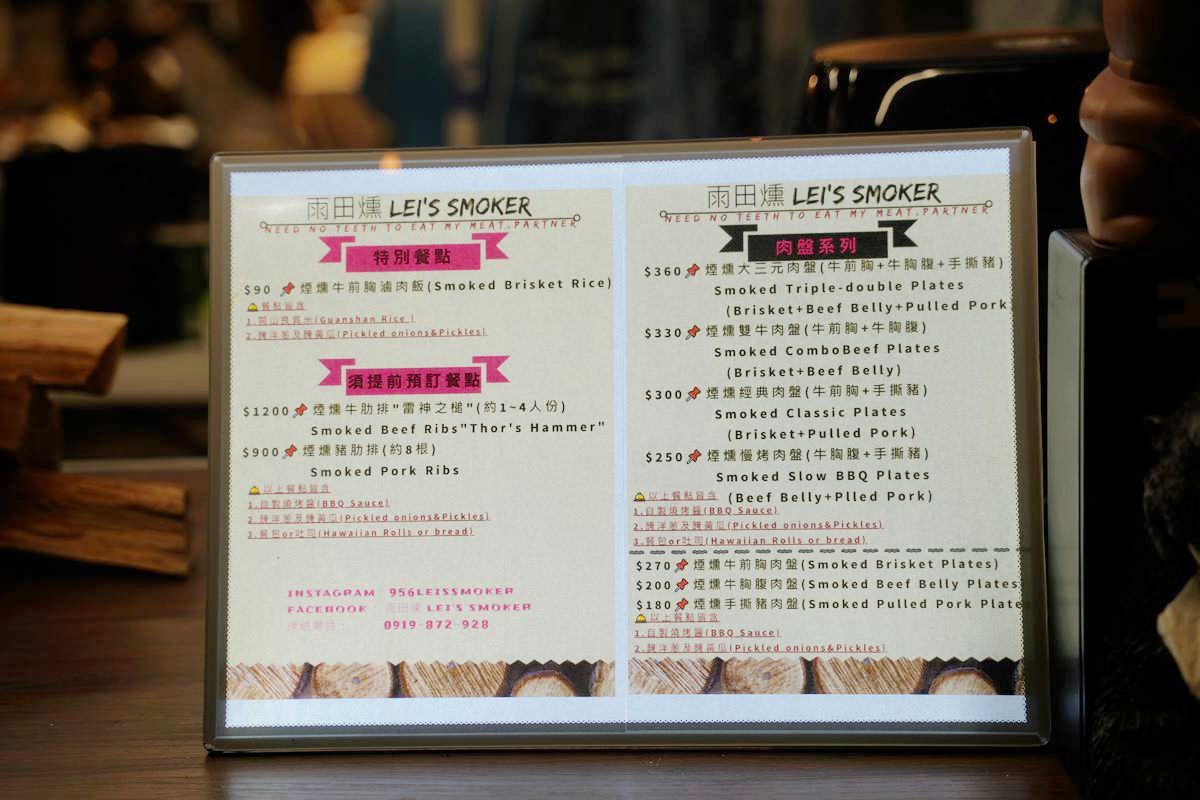 雨田燻 LEI'S SMOKER
NEED NO TEETH TO EAT MY MEAT.PARTNER
特別餐點
$90 煙燻牛前胸滷肉飯(Smoked Brisket Rice)
餐點皆含
1.關山良質米(Guanshan Rice )
2.醃洋蔥及醃黃瓜(Pickled onions&Pickles)
須提前預訂餐點
$1200 煙燻牛肋排"雷神之槌"(約1~4人份)
Smoked Beef Ribs"Thor's Hammer"
$900 煙燻豬肋排(約8根)
Smoked Pork Ribs
以上餐點皆含
1.自製燒烤醬(BBQ Sauce)
2.醃洋蔥及醃黃瓜(Pickled onions&Pickles)
3.餐包or吐司(Hawaiian Rolls or bread)
INSTAGRAM : 956LEISSMOKER
FACEBOOK : 雨田燻 LEI'S SMOKER
連絡電話 : 0919-872-928
雨田燻 LEI'S SMOKER
NEED NO TEETH TO EAT MY MEAT.PARTNER
肉盤系列
$360 煙燻大三元肉盤(牛前胸+牛胸腹+手撕豬)
Smoked Triple-double Plates
(Brisket+Beef Belly+Pulled Pork
$330 煙燻雙牛肉盤(牛前胸+牛胸腹)
Smoked ComboBeef Plates
(Brisket+Beef Belly)
$300 煙燻經典肉盤(牛前胸+手撕豬)
Smoked Classic Plates
(Brisket+Pulled Pork)
$250 煙燻慢烤肉盤(牛胸腹+手撕豬)
Smoked Slow BBQ Plates
以上餐點皆含 (Beef Belly+Plled Pork)
1.自製燒烤醬(BBQ Sauce)
2.醃洋蔥及醃黃瓜(Pickled onions&Pickles)
3.餐包or吐司(Hawaiian Rolls or bread)
$270 煙燻牛前胸肉盤(Smoked Brisket Plates)
$200 煙燻牛胸腹肉盤(Smoked Beef Belly Plates
$180 煙燻手撕豬肉盤(Smoked Pulled Pork Plates
以上餐點皆含
1.自製燒烤醬(BBQ Sauce)
2.醃洋蔥及醃黃瓜(Pickled onions&Pickles)